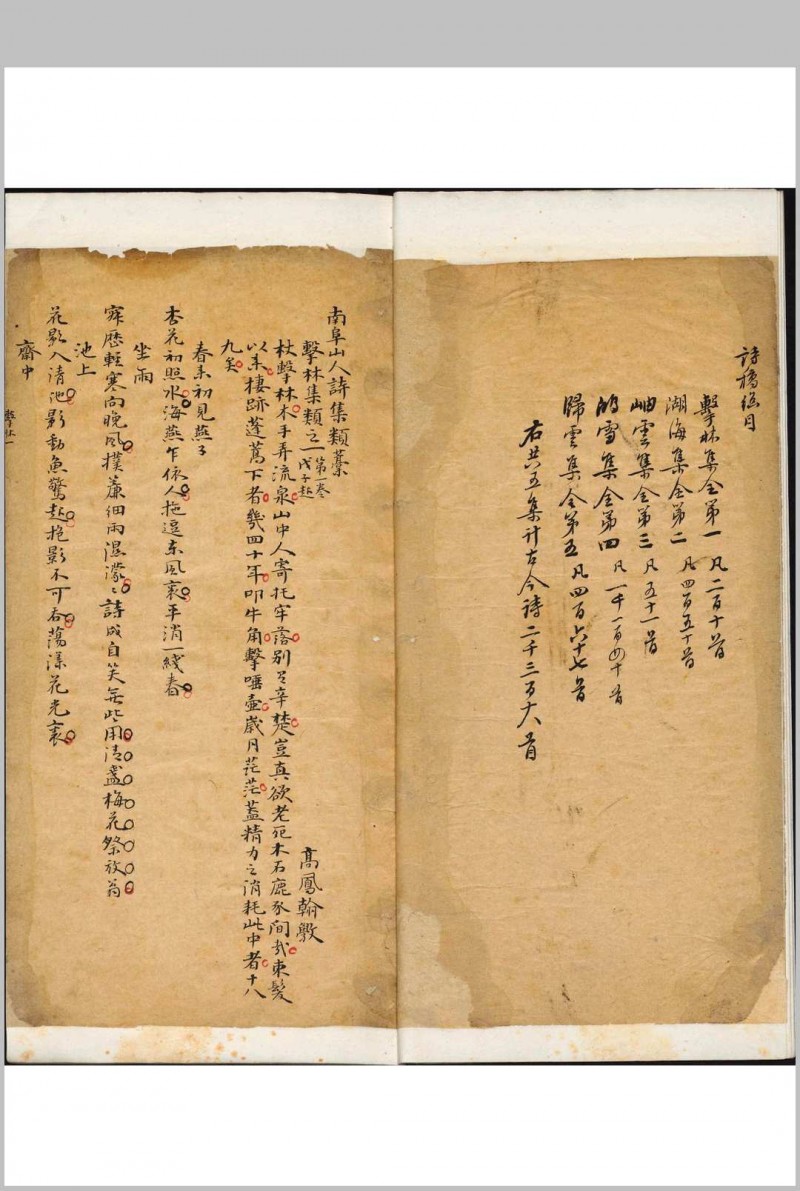 詩稿總目
擊林集全第一 凡二百十首
湖海集全第二 凡四百五十首
岫雲集全第三 凡五十一首
鴻雪集全第四 凡一千一百四十首
歸雲集全第五 凡四百六十七首
右共五集計古今詩二千三百十八首
南阜山人詩集類藁
擊林集類之一 第一卷 戊子起
高鳳翰
杖擊林木手弄流泉山中人寄托牢落別具辛楚豈真欲老死木石鹿豕間哉束髮
以來棲跡蓬蒿下者幾四十年叩牛角擊唾壺歲月茫茫蓋精力之消耗此中者十八
九矣
春末初見燕子
杏花初照水海燕乍依人拖逗東風裏平消一綫春
坐雨
寂歷輕寒向晚風撲簾細雨濕濛濛詩成自笑無些用清盞梅花祭放翁
池上
花影入清池影動魚驚起抱影不可吞蕩漾花光裏
齋中
擊林一